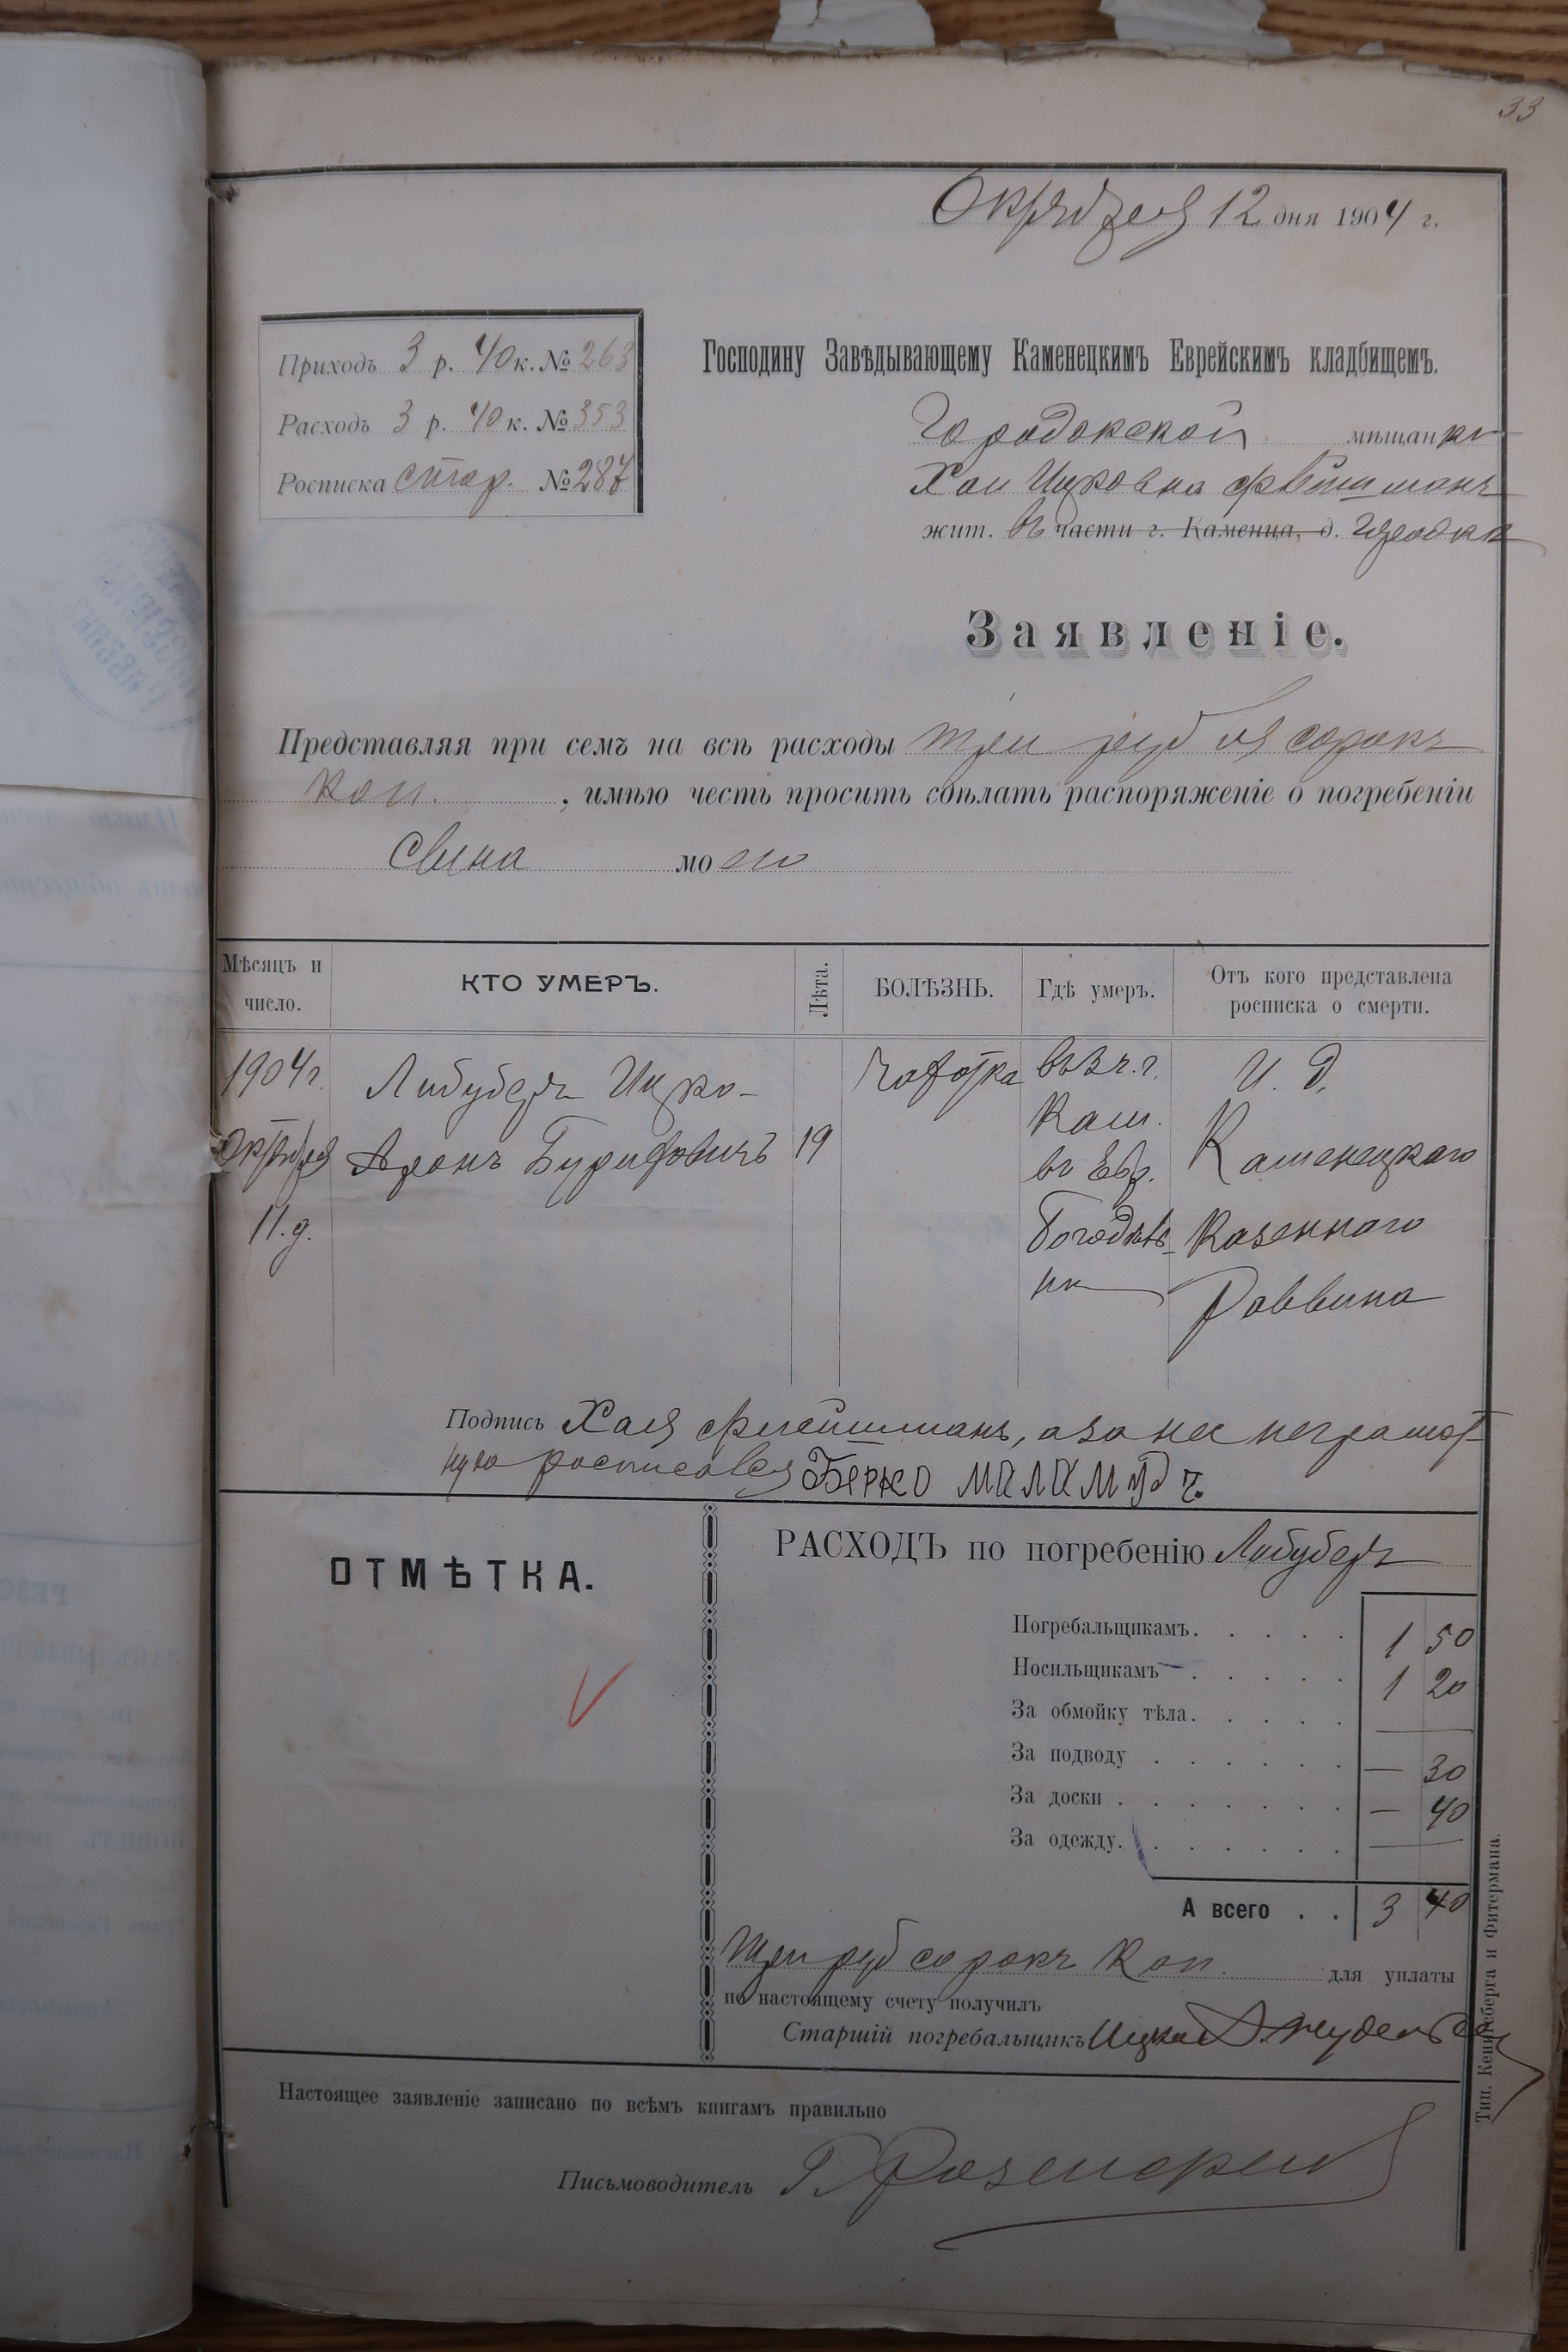 33
Октября 12 дня 1904 г.
Приходъ 3 р. 40 к. № 263
Расходъ 3 р. 40 к. № 353
Росписка стар. № 287
Господину Завѣдывающему Каменецкимъ Еврейскимъ кладбищемъ.
Городокской мѣщанки
Хаи Ицковна Флейшманъ
жит. въ части г. Каменца, д. Городкѣ
Заявленіе.
Представляя при семъ на всѣ расходы три руб сорокъ
коп. , имѣю честь просить сдѣлать распоряженіе о погребеніи
сына моего
Мѣсяцъ и число. КТО УМЕРЪ. Лѣта. БОЛѢЗНЬ. Гдѣ умеръ. Отъ кого представлена росписка о смерти.
1904 г. Октября 11. д.
Либуберъ Ицко-
Аронъ Бурифовичъ
19
Чахотка
въ 3 ч. г.
Кам.
въ Евр.
Богодѣль-
ни
И. д.
Каменецкаго
Казеннаго
Раввина
Подпись Хая Флейшманъ, а за нее неграмот-
ную росписался Берко маламудъ
ОТМѢТКА.
РАСХОДЪ по погребенію Либуберъ
Погребальщикамъ. . . . . 1 50
Носильщикамъ . . . . . 1 20
За обмойку тѣла. . . . . —
За подводу . . . . . . — 30
За доски . . . . . . . — 40
За одежду. . . . . . . —
А всего . . 3 40
Три руб сорокъ коп. для уплаты
по настоящему счету получилъ
Старшій погребальщикъ Ицко
Настоящее заявленіе записано по всѣмъ книгамъ правильно
Письмоводитель
Тип. Кенигсберга и Фитермана.